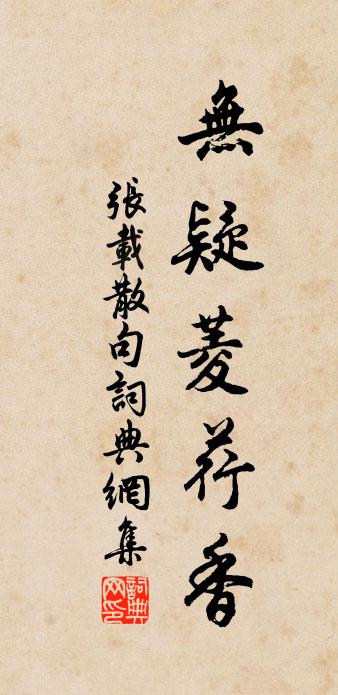 無疑菱荇香
張載散句詞典網集
詞典
网印